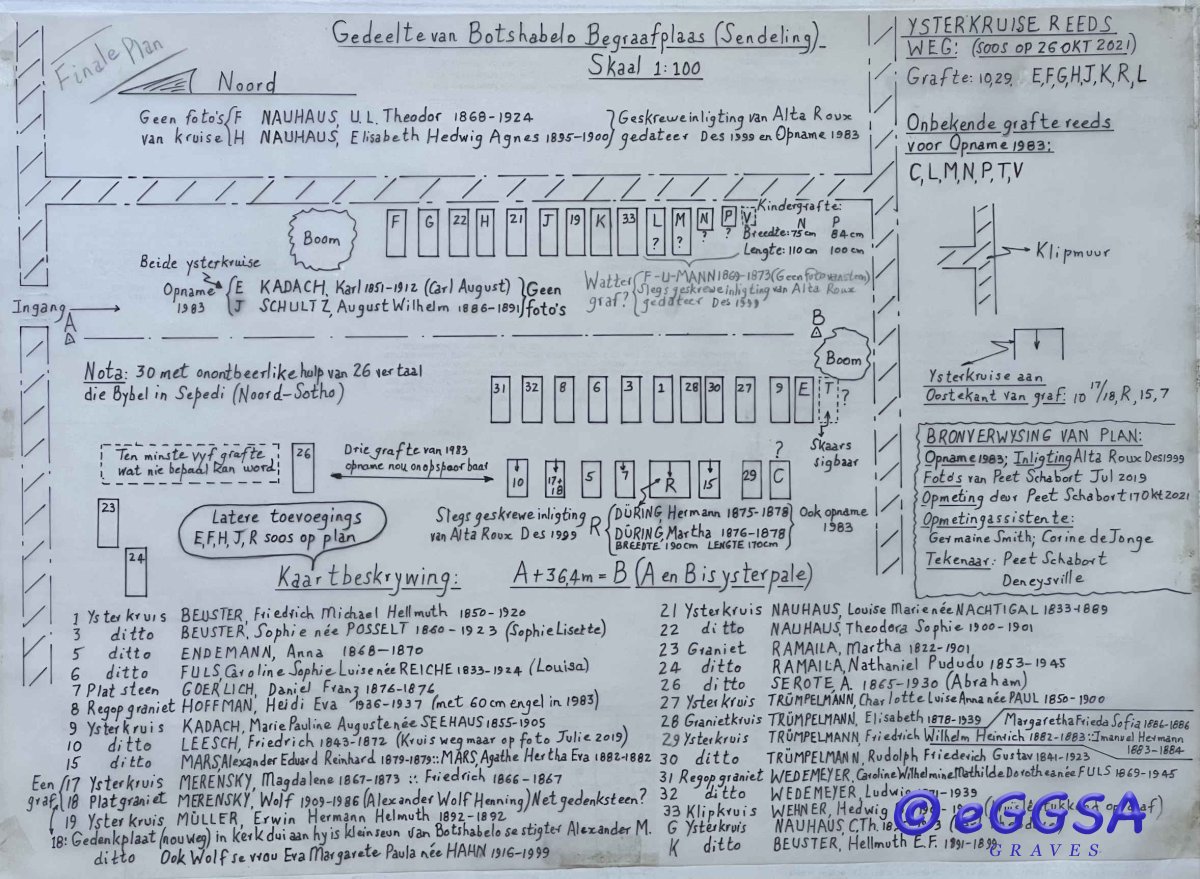 Finale Plan
Gedeelte van Botshabelo Begraafplaas (Sendeling)
Skaal 1:100
Noord
Geen foto's van kruise
F NAUHAUS, U.L. Theodor 1868-1924
H NAUHAUS, Elisabeth Hedwig Agnes 1895-1900
Geskrewe inligting van Alta Roux
gedateer Des 1999 en Opname 1983
YSTERKRUISE REEDS
WEG: (SOOS OP 26 OKT 2021)
Grafte: 10,29, E,F,G,H,J,K,R,L
Onbekende grafte reeds
voor Opname 1983:
C,L,M,N,P,T,V
Boom
F G 22 H 21 J 19 K 33 L M N P V
? ? ? ?
Kindergrafte:
N P
Breedte: 75cm 84cm
Lengte: 110cm 100cm
Klipmuur
Beide ysterkruise
Opname 1983
E KADACH, Karl 1851-1912 (Carl August)
J SCHULTZ, August Wilhelm 1886-1891
Geen foto's
Watter graf?
F-U-MANN 1869-1873 (Geen foto van steen)
Slegs geskrewe inligting van Alta Roux
gedateer Des 1999
Ingang
A
B
Boom
Nota: 30 met onontbeerlike hulp van 26 vertaal
die Bybel in Sepedi (Noord-Sotho)
31 32 8 6 3 1 28 30 27 9 E T ?
Skaars
sigbaar
Ysterkruise aan
Oostekant van graf: 10 17/18, R, 15, 7
Ten minste vyf grafte
wat nie bepaal kan word
26
Drie grafte van 1983
opname nou onopspoorbaar
10 17+18 5 7 R 15 29 C
?
23
24
Latere toevoegings
E,F,H,J,R soos op plan
Slegs geskrewe inligting
van Alta Roux Des 1999
R
DÜRING, Hermann 1875-1878
DÜRING, Martha 1876-1878
BREEDTE 190cm LENGTE 170cm
Ook opname
1983
BRONVERWYSING VAN PLAN:
Opname 1983; Inligting Alta Roux Des 1999
Foto's van Peet Schabort Jul 2019
Opmeting deur Peet Schabort 17 Okt 2021
Opmetingassistente:
Germaine Smith; Corine de Jonge
Tekenaar: Peet Schabort
Deneysville
Kaartbeskrywing: A+36,4m = B (A en B is ysterpale)
1 Ysterkruis BEUSTER, Friedrich Michael Hellmuth 1850-1920
3 ditto BEUSTER, Sophie née POSSELT 1860-1923 (Sophie Lisette)
5 ditto ENDEMANN, Anna 1868-1870
6 ditto FULS, Caroline Sophie Luise née REICHE 1833-1924 (Louisa)
7 Plat steen GOERLICH, Daniel Franz 1876-1876
8 Regop graniet HOFFMAN, Heidi Eva 1936-1937 (met 60cm engel in 1983)
9 Ysterkruis KADACH, Marie Pauline Auguste née SEEHAUS 1855-1905
10 ditto LEESCH, Friedrich 1843-1872 (Kruis weg maar op foto Julie 2019)
15 ditto MARS, Alexander Eduard Reinhard 1879-1879 :: MARS, Agathe Hertha Eva 1882-1882
Een graf
17 Ysterkruis MERENSKY, Magdalene 1867-1873 :: Friedrich 1866-1867
18 Plat graniet MERENSKY, Wolf 1909-1986 (Alexander Wolf Henning) Net gedenksteen?
19 Ysterkruis MÜLLER, Erwin Hermann Helmuth 1892-1892
18: Gedenkplaat (nou weg) in kerk dui aan hy is kleinseun van Botshabelo se stigter Alexander M.
ditto Ook Wolf se vrou Eva Margarete Paula née HAHN 1916-1999
21 Ysterkruis NAUHAUS, Louise Marie née NACHTIGAL 1833-1889
22 ditto NAUHAUS, Theodora Sophie 1900-1901
23 Graniet RAMAILA, Martha 1822-1901
24 ditto RAMAILA, Nathaniel Pududu 1853-1945
26 ditto SEROTE, A. 1865-1930 (Abraham)
27 Ysterkruis TRÜMPELMANN, Charlotte Luise Anna née PAUL 1850-1900
28 Granietkruis TRÜMPELMANN, Elisabeth 1878-1939 / Margaretha Frieda Sofia 1886-1886
29 Ysterkruis TRÜMPELMANN, Friedrich Wilhelm Heinrich 1882-1883 :: Imanuel Hermann 1883-1884
30 ditto TRÜMPELMANN, Rudolph Friederich Gustav 1841-1923
31 Regop graniet WEDEMEYER, Caroline Wilhelmine Mathilde Dorothea née FULS 1869-1945
32 ditto WEDEMEYER, Ludwig 1939
33 Klipkruis WEHNER, Hedwig
G Ysterkruis NAUHAUS, C.Th.
K ditto BEUSTER, Hellmuth E.F.
© eGGSA
GRAVES